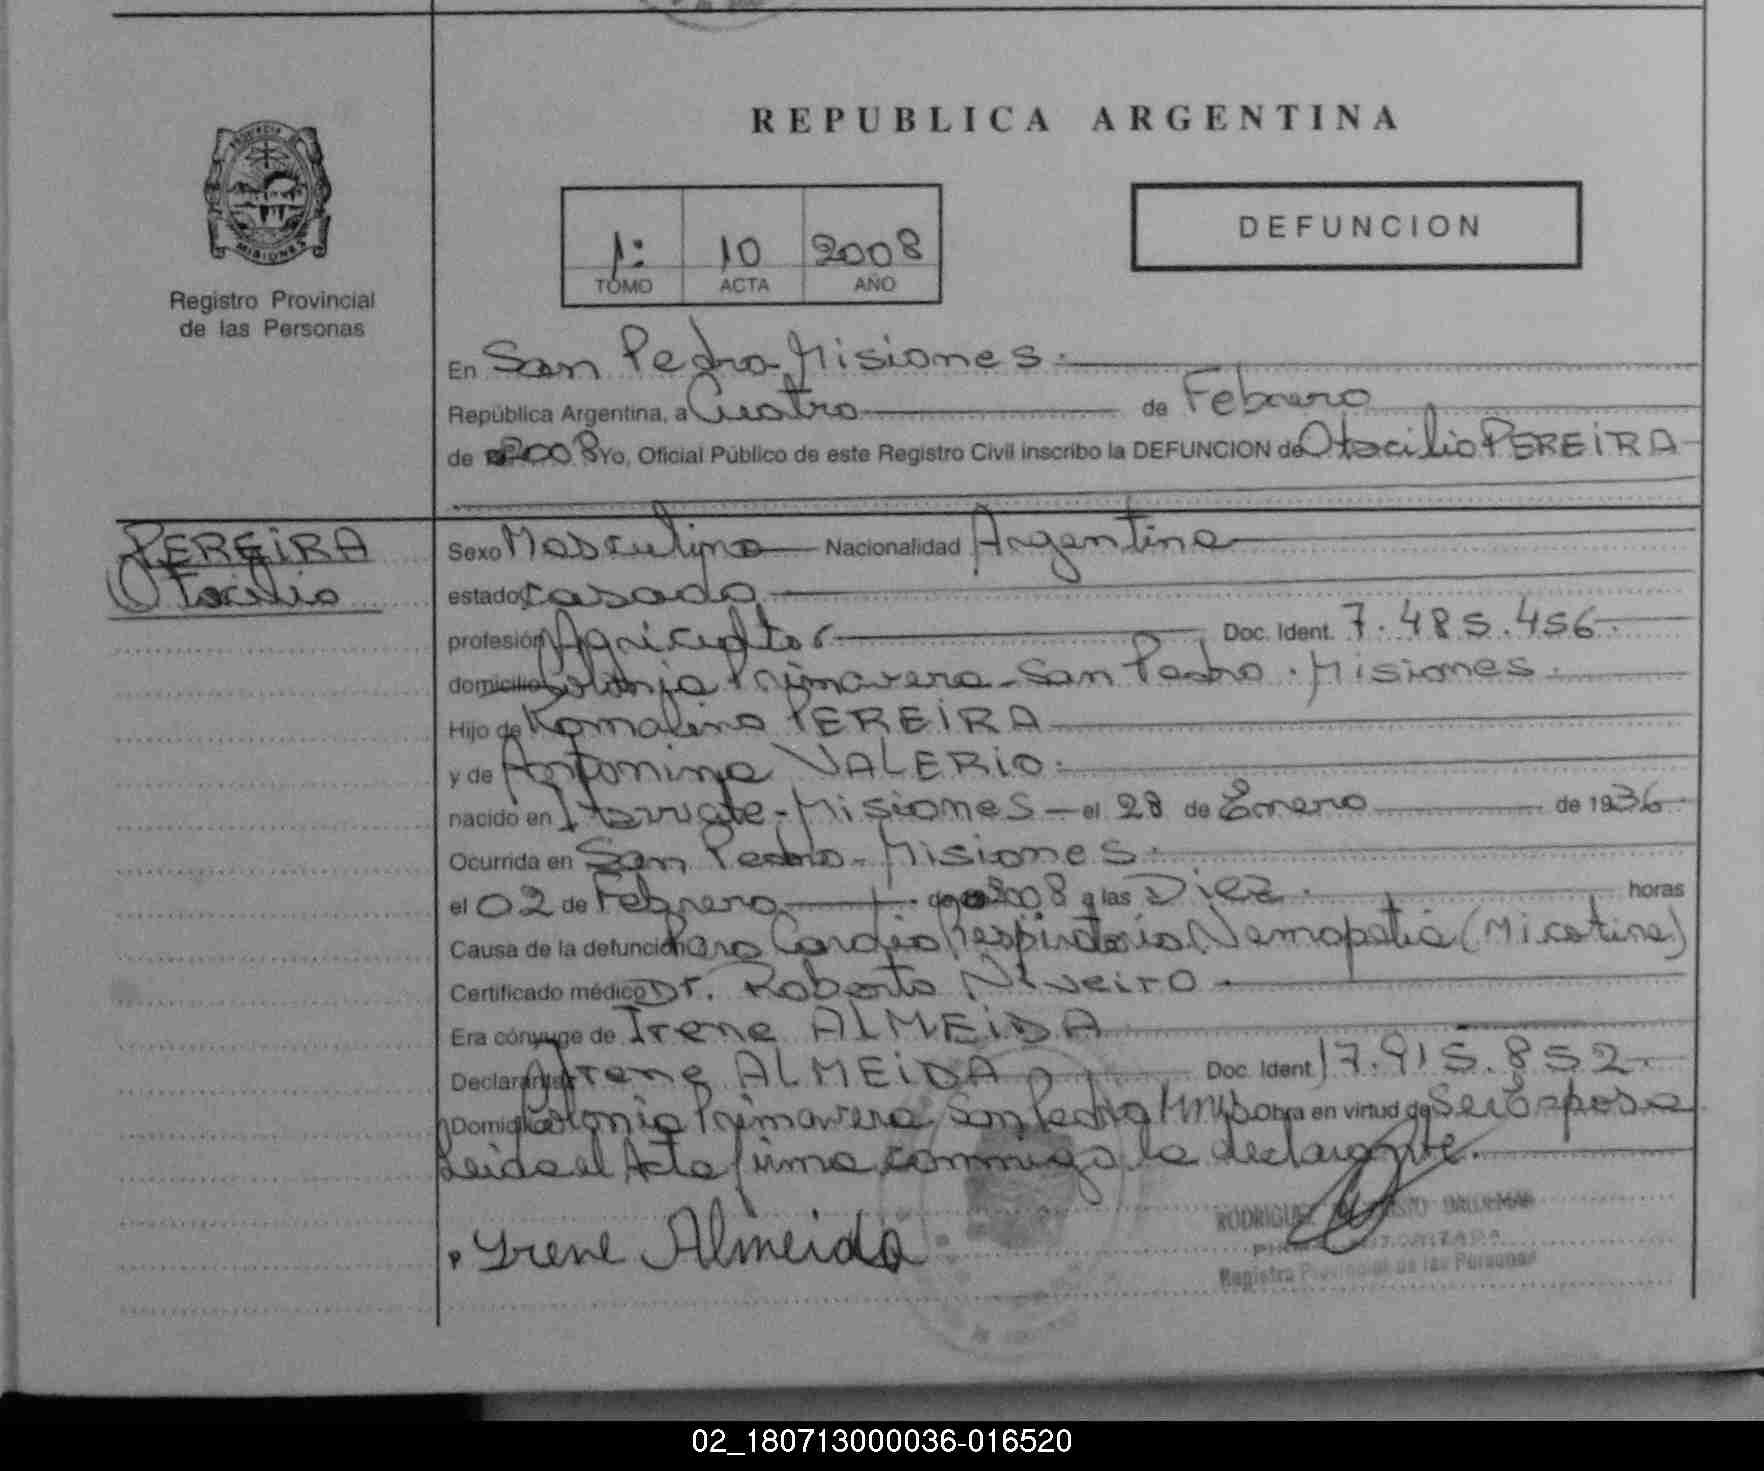 REPUBLICA ARGENTINA
PROVINCIA DE
MISIONES
Registro Provincial
de las Personas
1º: 10 2008
TOMO ACTA AÑO
DEFUNCION
En San Pedro-Misiones.
República Argentina, a Cuatro de Febrero
de 2008 Yo, Oficial Público de este Registro Civil inscribo la DEFUNCION de Otacilio PEREIRA
PEREIRA
Otacilio
Sexo Masculino Nacionalidad Argentina
estado casado
profesión Agricultor Doc. Ident. 7.485.456.
domicilio Colonia Primavera-San Pedro. Misiones.
Hijo de Romalino PEREIRA
y de Antonina VALERIO.
nacido en Misiones el 28 de Enero de 1936
Ocurrida en San Pedro-Misiones.
el 02 de Febrero de 2008 a las Diez. horas
Causa de la defunción Paro Cardio Respiratorio
Certificado médico Dr. Roberto Niveiro
Era cónyuge de Irene ALMEIDA
Declarante Irene ALMEIDA Doc. Ident 17.915.852.
Domicilio Colonia Primavera San Pedro Mnes Obra en virtud de Ser Esposa
Leida el Acta firma conmigo la declarante.
Irene Almeida
RODRIGUEZ
Registro Provincial de las Personas
02_180713000036-016520